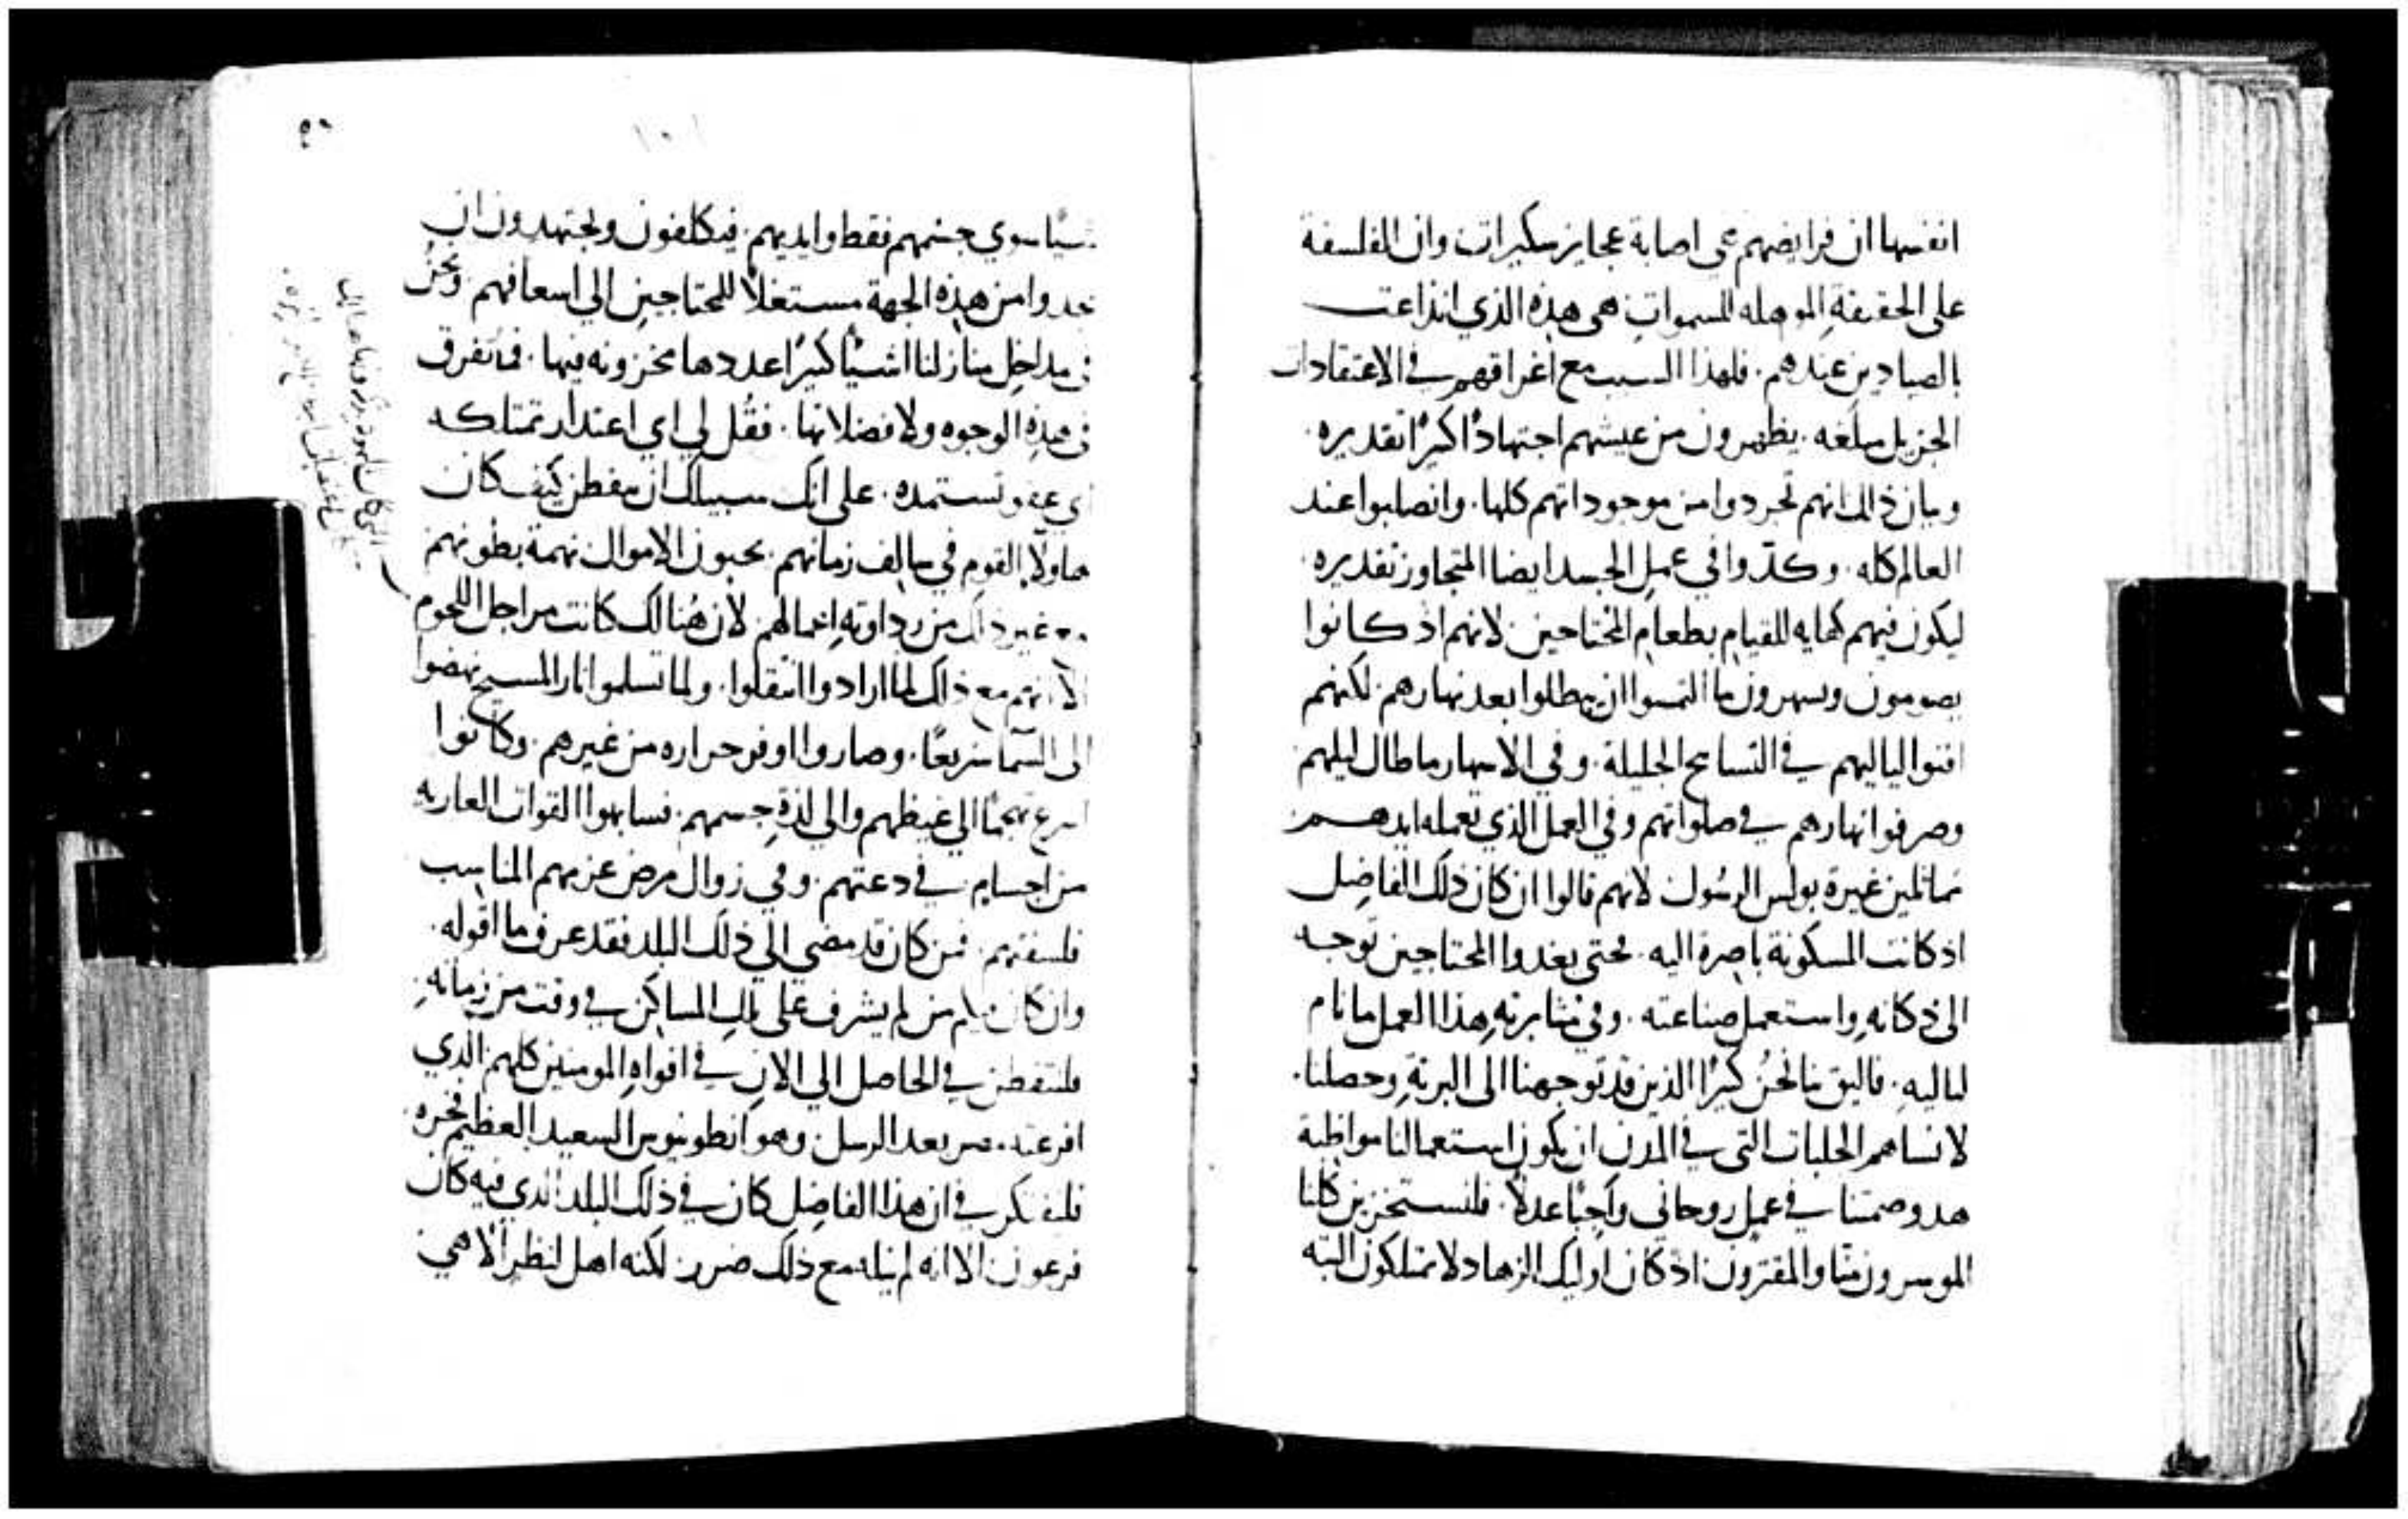 انفسها ان فرايضهم هي اصابة عجايز سكيرات وان الفلسفة
على الحقيقة الموهله للسموات هي هذه الذي انذاعت
بالصيادين عندهم. فلهذا السبب مع اغراقهم في الاعتقادات
الجزيل مبلغه. يظهرون من عيشهم اجتهادًا كبيرًا تقديره.
وبيان ذالك انهم تجردوا من موجوداتهم كلها. وانصلبوا عند
العالم كله. وكدّوا في عمل الجسد ايضا المتجاوز تقديره.
ليكون فيهم كفايه للقيام بطعام المحتاجين لانهم اذ كانوا
يصومون ويسهرون ما التمسوا ان يبطلوا بعد نهارهم. لكنهم
افنوا لياليهم في التسابيح الجليلة. وفي الاسهار ما طال ليلهم
وصرفوا نهارهم في صلواتهم وفي العمل الذي تعمله ايديهم
مماثلين غيرة بولس الرسُول لانهم قالوا ان كان ذلك الفاضِل
اذ كانت المسكونة باصرة اليه. حتى يغدوا المحتاجين توجه
الى دكانهِ واستعمل صناعته. وفي مثابرتهِ هذا العمل ما نام
لياليهِ. فاليق بنا نحنُ كثيرًا الذين قد توجهنا الى البريّةِ وحصلنا.
لا نساهم الجلبات التي في المدن ان يكون استعمالنا مواظبة
هدو صمتنا في عمل روحاني واجبًا عدلاً. فلنستخزين كلنا
الموسرون منّا والمقترون اذ كان اوليك الزهاد لا يمتلكون البته
شيًا سوي جسمهم فقط وايديهم. فيتكلفون ويجتهدون ان
يجدوا من هذه الجهة مستغلاً للمحتاجين الي اسعافهم. ونحن
في مداخل منازلنا اشيًا كثيرًا عددها مخزونه فيها. فما نفرق
في هذهِ الوجوه ولا فضلاتها. فقُل لي اي اعتدار تمتلكه
اي عفو تستمده. على انك سبيلك ان تفطن كيف كان
هاولاء القوم في سالف زمانهم. يحبون الاموال نهمة بطونهم
غير ذلك من رداوتهِ اخمالهم. لان هُنالك كانت مراجل اللحوم
الا انهم مع ذلك لما ارادوا انتقلوا. ولما تسلموا نار المسيح نهضوا
الى السّما سريعًا. وصاروا اوفر حراره من غيرهم. وكانوا
اسرع تهجمًا الي غيظهم والي لذةِ جسمهم. فسابهوا القوات العاريه
من اجسام في دعتهم. وفي زوال مرض عزمهم المناسب
فلسفتهم. فمن كان قد مضي الي ذلك البلد فقد عرف ما اقوله.
وان كان منكم من لم يشرف على تلك المساكن في وقت من زمانهِ
فليتفطن في الحاصل الي الان في افواهِ المومنين كلهم الذي
بعد الرسل وهو انطونيوس السعيد العظيم فخره.
فليفتكر في ان هذا الفاضِل كان في ذلك البلد الذي فيه كان
فرعون الا انه لم ينله مع ذلك ضرر لكنه اهل لنظر الاهي